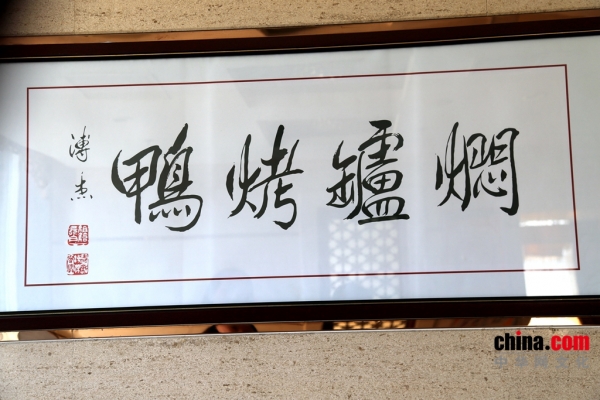 燜鑪烤鴨
溥杰
china.com